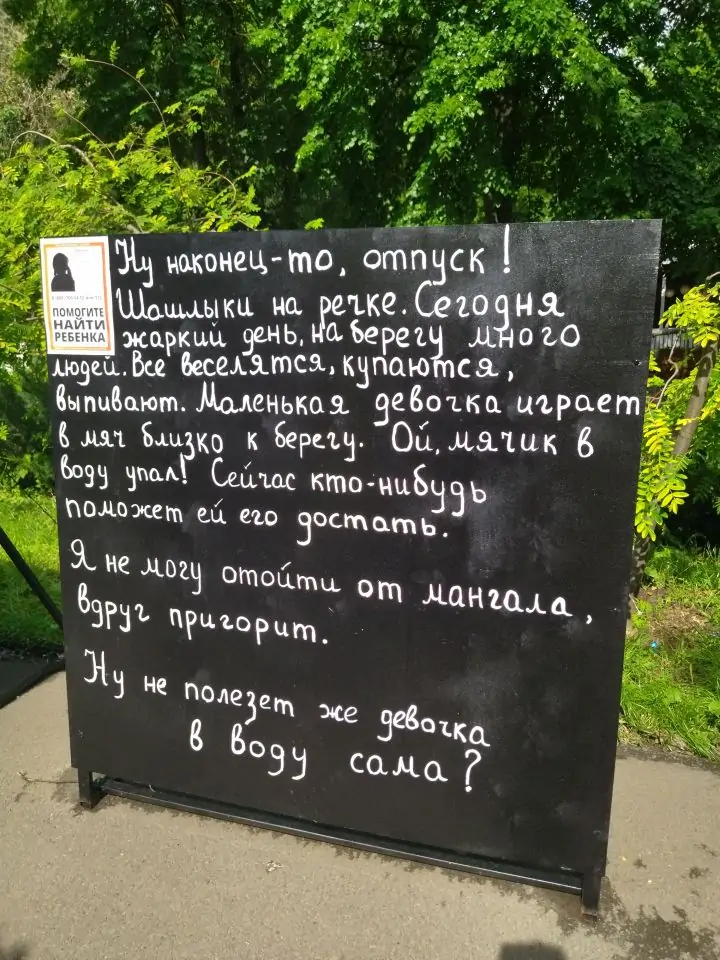 ПОМОГИТЕ
НАЙТИ
РЕБЕНКА
Ну наконец-то, отпуск!
Шашлыки на речке. Сегодня
жаркий день, на берегу много
людей. Все веселятся, купаются,
выпивают. Маленькая девочка играет
в мяч близко к берегу. Ой, мячик в
воду упал! Сейчас кто-нибудь
поможет ей его достать.
Я не могу отойти от мангала,
вдруг пригорит.
Ну не полезет же девочка
в воду сама?